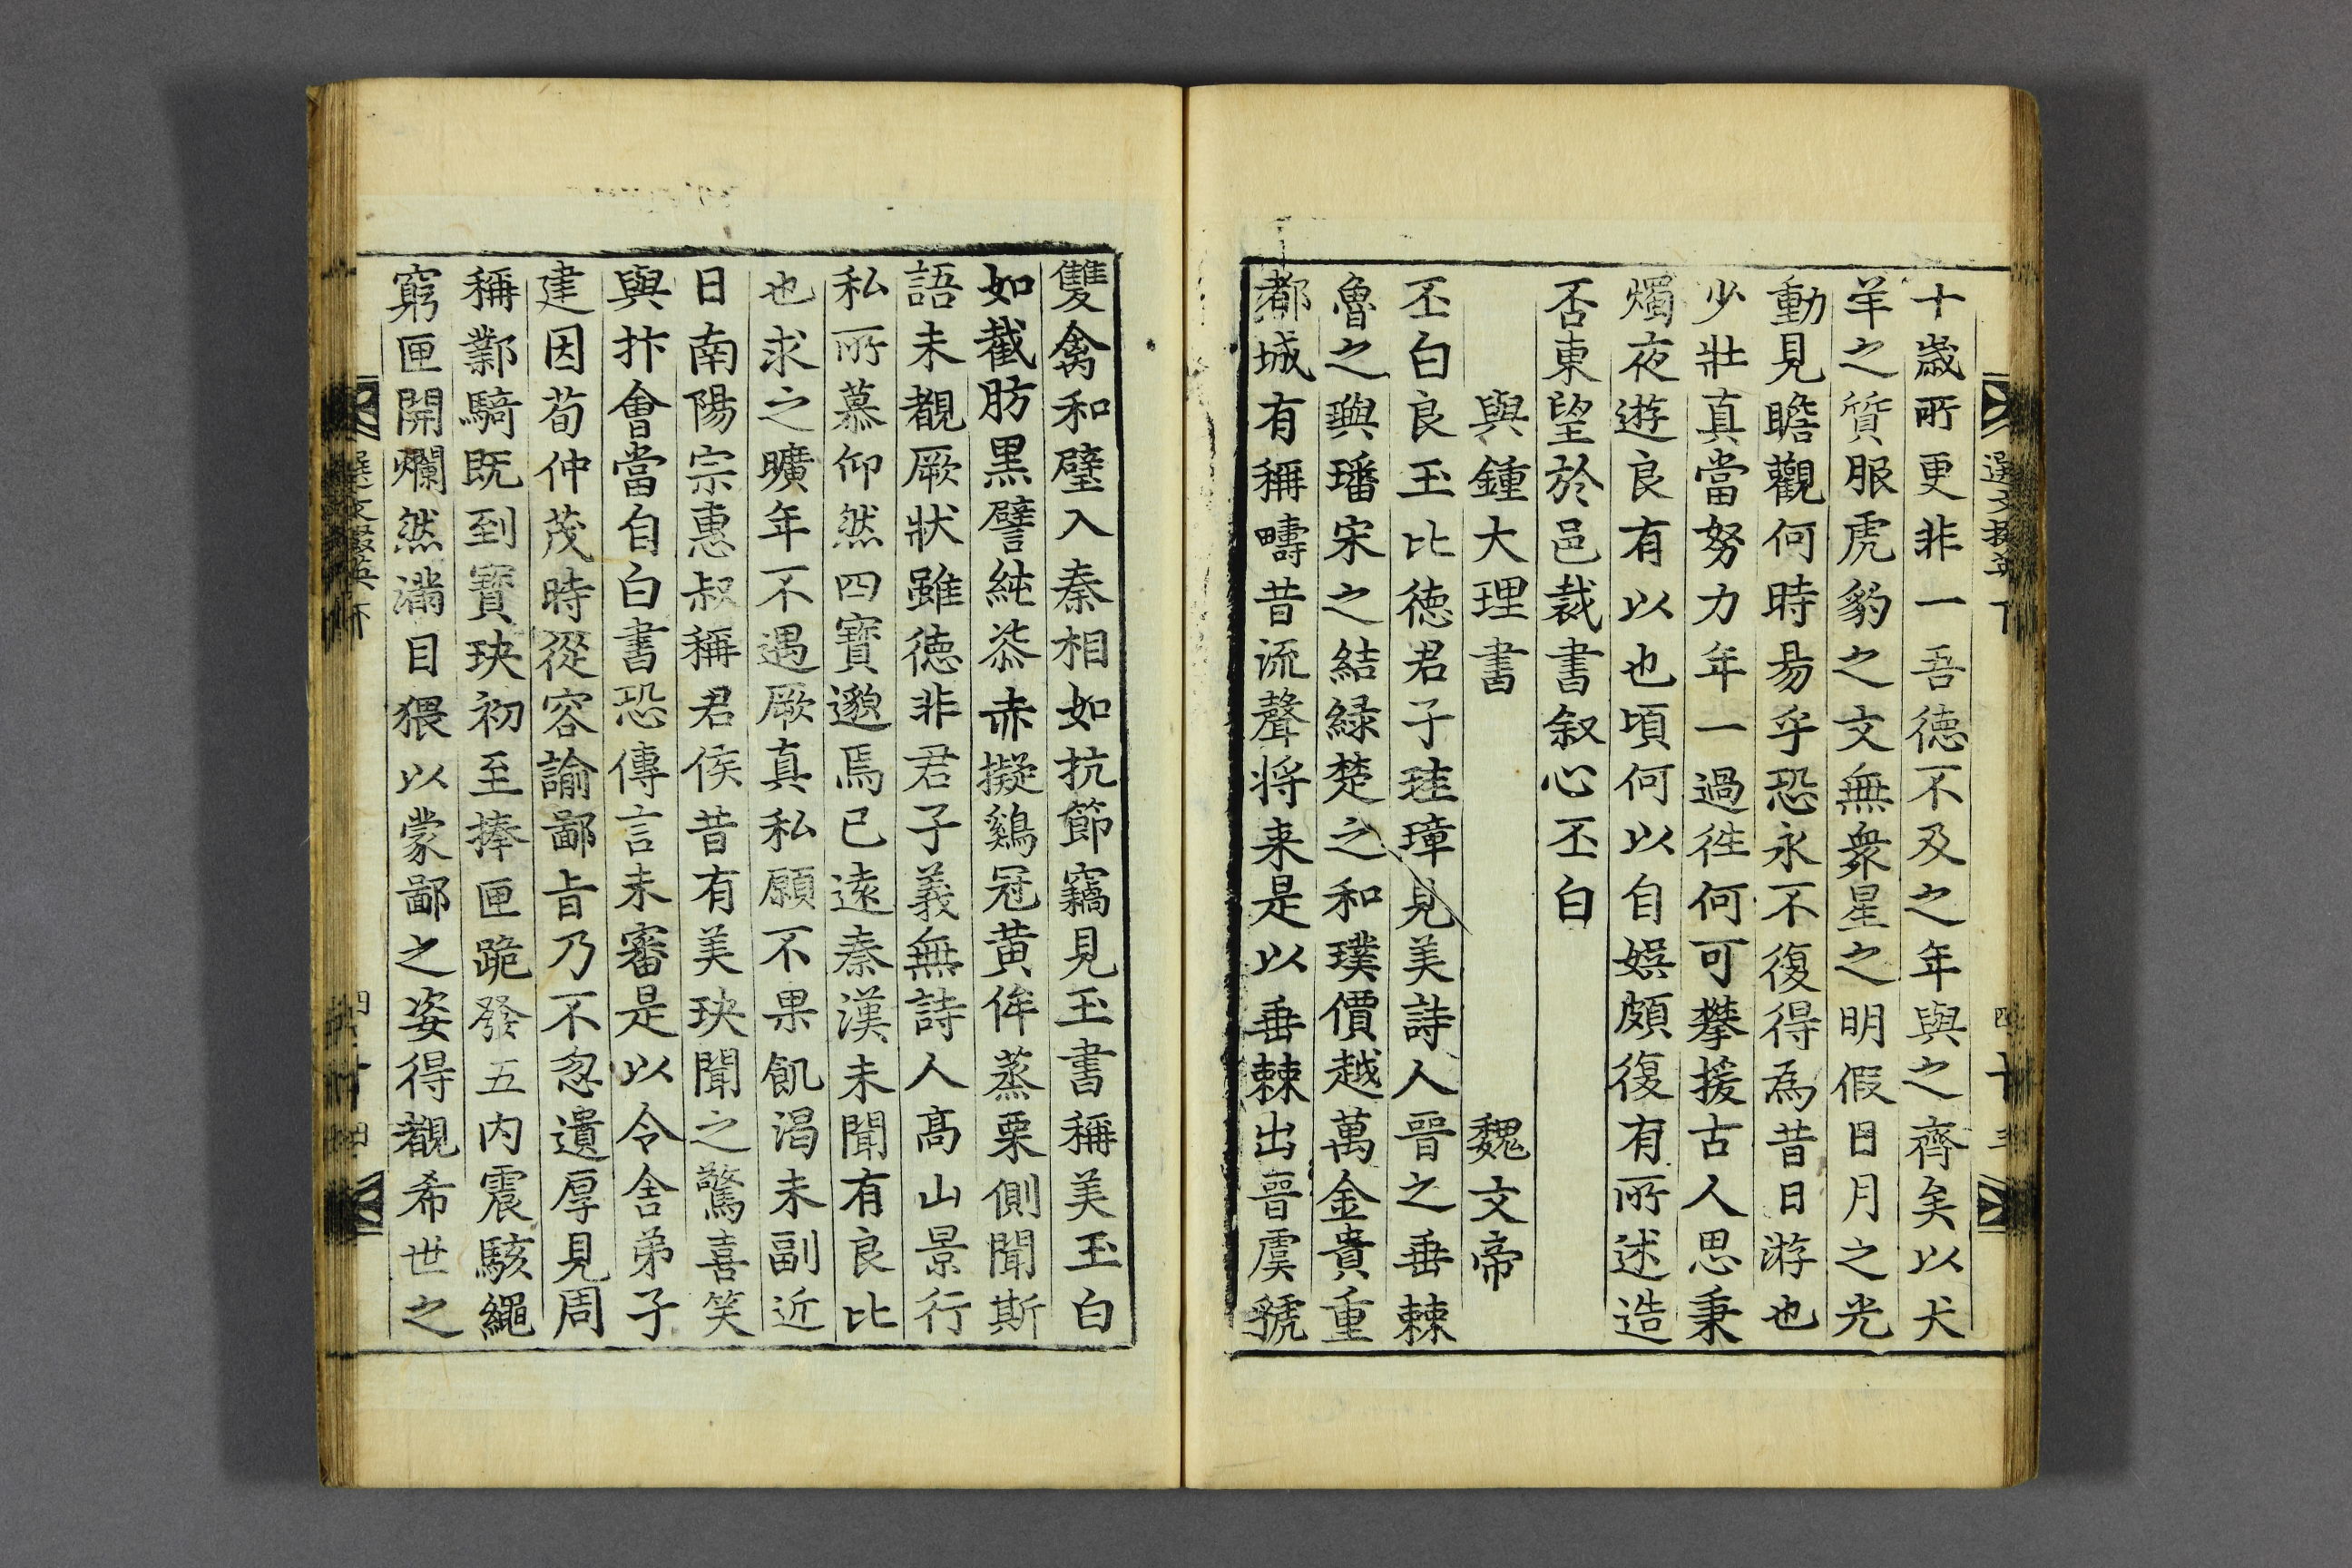 十歲所更非一吾德不及之年與之齊矣以犬
羊之質服虎豹之文無衆星之明假日月之光
動見瞻觀何時易乎恐永不復得為昔日游也
少壯真當努力年一過徃何可攀援古人思秉
燭夜遊良有以也頃何以自娛頗復有所述造
否東望於邑裁書叙心丕白
與鍾大理書 魏文帝
丕白良玉比德君子珪璋見美詩人晉之垂棘
魯之璵璠宋之結緑楚之和璞價越萬金貴重
都城有稱疇昔流聲将来是以垂棘出晉虞虢
雙禽和璧入秦相如抗節竊見玉書稱美玉白
如截肪黒譬純漆赤擬鷄冠黄侔蒸栗側聞斯
語未覩厥狀雖徳非君子義無詩人髙山景行
私所慕仰然四寳邈焉已遠秦漢未聞有良比
也求之曠年不遇厥真私願不果飢渴未副近
日南陽宗惠叔稱君侯昔有美玦聞之驚喜笑
與抃會當自白書恐傳言未審是以令舍弟子
建因荀仲茂時從容諭鄙旨乃不忽遺厚見周
稱鄴騎既到寳玦初至捧匣跪發五内震駭繩
窮匣開爛然滿目猥以蒙鄙之姿得覩希世之
選文掇英 下
四十三
四十四